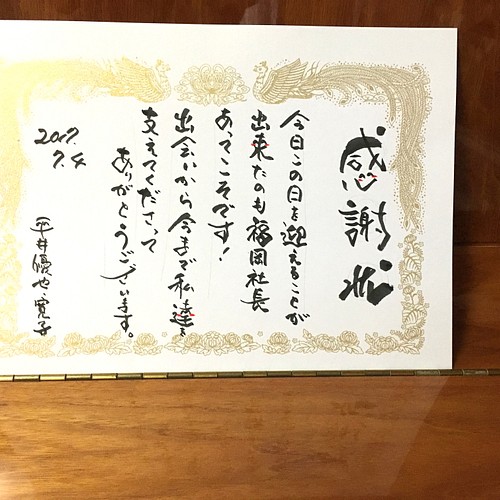 感謝状
今日この日を迎えることが
出来たのも福岡社長
あってこそです!
出会いから今まで私達を
支えてくださって
ありがとうございます。
2017.
7.4
平井優也・寛子